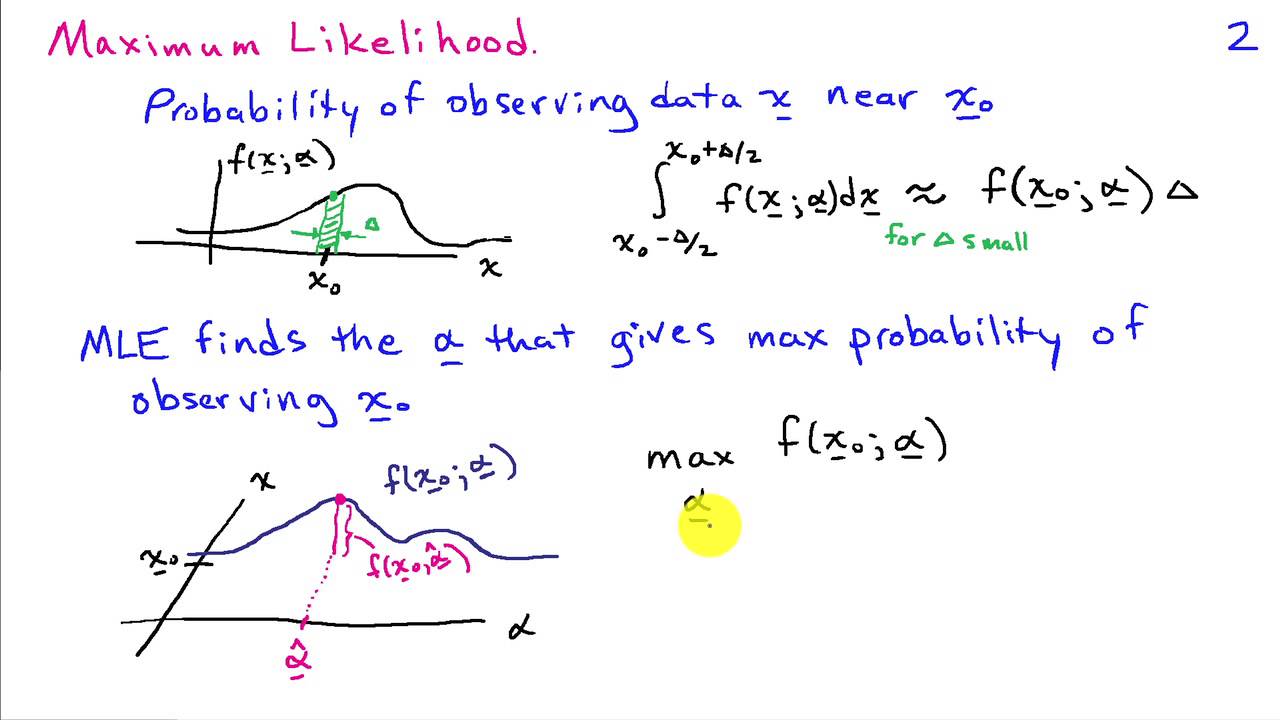 Maximum Likelihood.
2
Probability of observing data x near x₀
f(x; α)
Δ
x₀
x
x₀+Δ/2
∫ f(x; α)dx ≈ f(x₀; α) Δ
x₀-Δ/2
for Δ small
MLE finds the α that gives max probability of
observing x₀
max f(x₀; α)
α
x
f(x₀; α)
x₀
f(x₀; α̂)
α
α̂